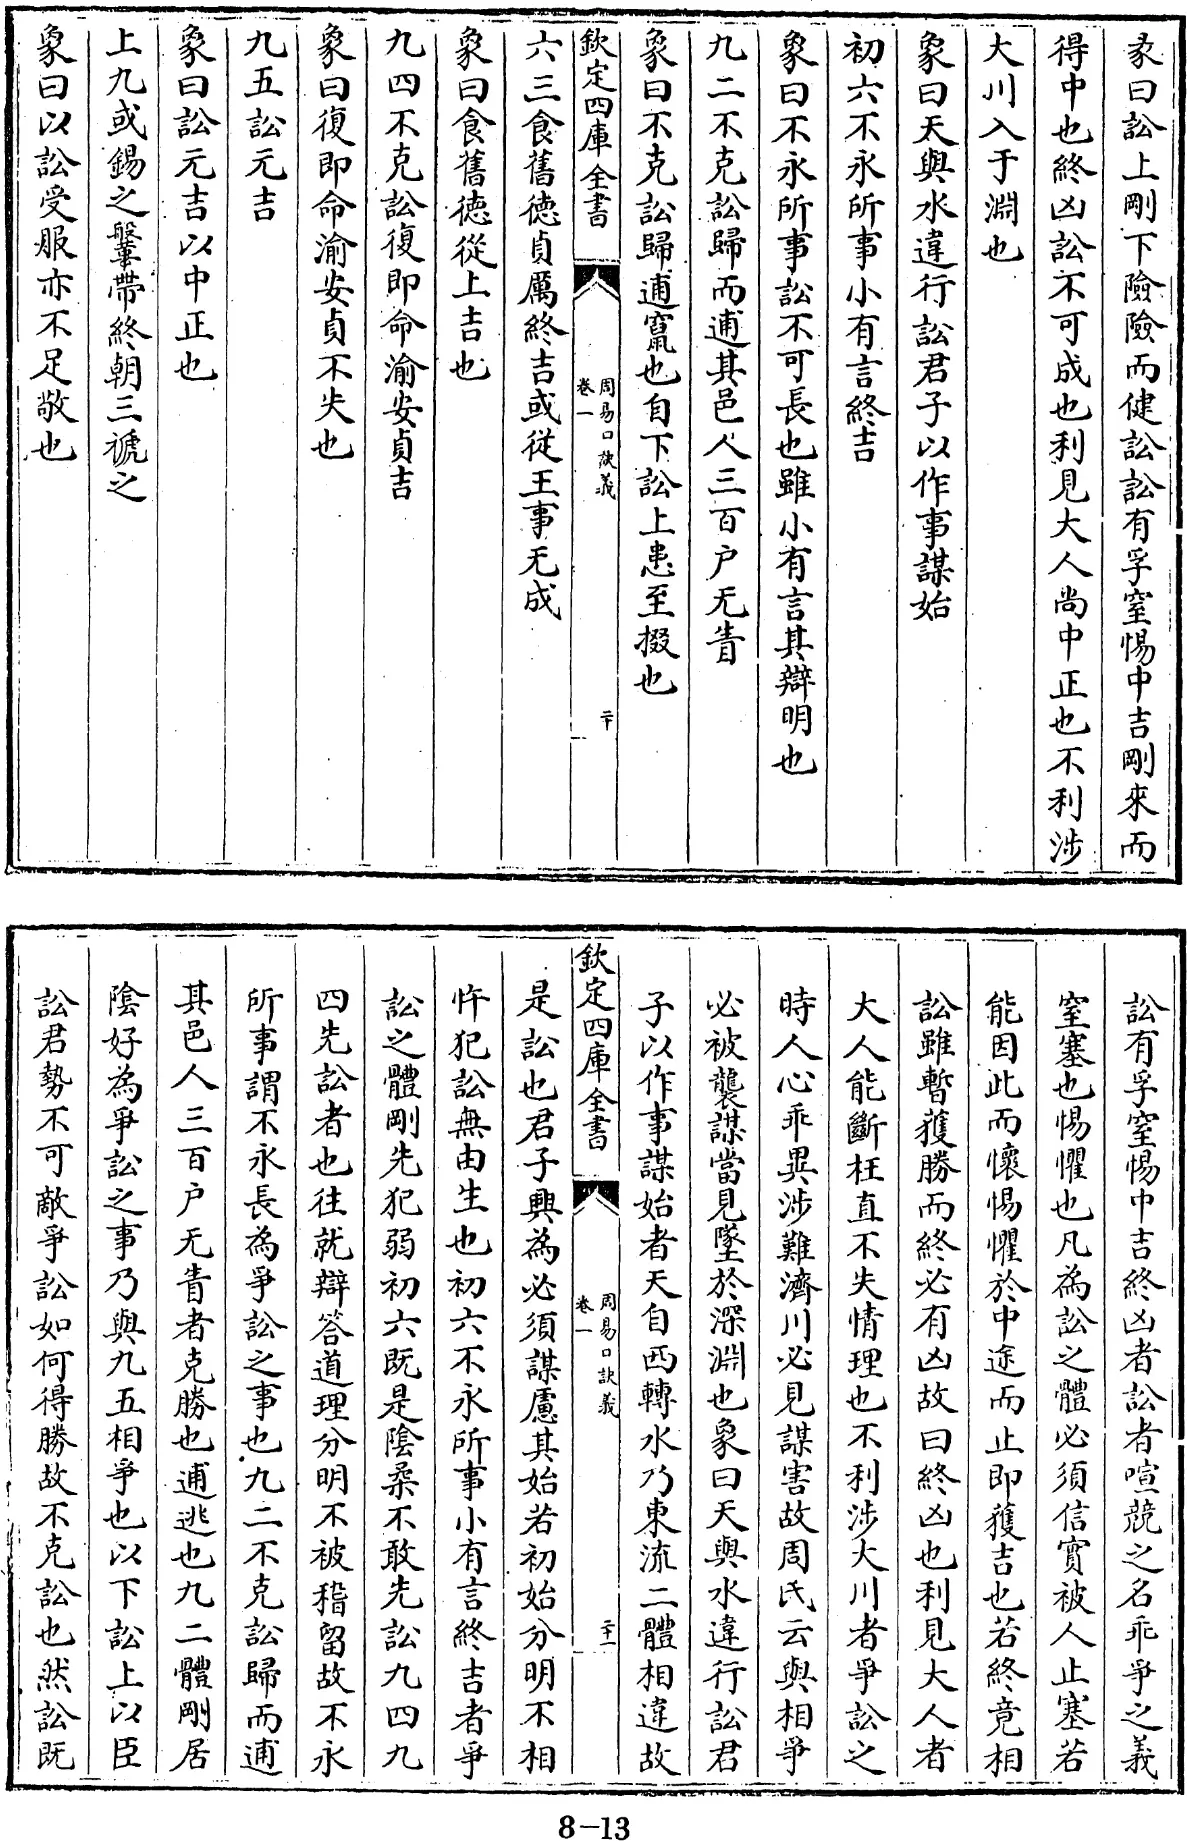 彖曰訟上剛下險險而健訟訟有孚窒惕中吉剛來而
得中也終凶訟不可成也利見大人尚中正也不利涉
大川入于淵也
象曰天與水違行訟君子以作事謀始
初六不永所事小有言終吉
象曰不永所事訟不可長也雖小有言其辯明也
九二不克訟歸而逋其邑人三百户无眚
象曰不克訟歸逋竄也自下訟上患至掇也
欽定四庫全書
周易口訣義
卷一
二十
六三食舊德貞厲終吉或從王事无成
象曰食舊德從上吉也
九四不克訟復即命渝安貞吉
象曰復即命渝安貞不失也
九五訟元吉
象曰訟元吉以中正也
上九或錫之鞶帶終朝三褫之
象曰以訟受服亦不足敬也
訟有孚窒惕中吉終凶者訟者喧競之名乖爭之義
窒塞也惕懼也凡為訟之體必須信實被人止塞若
能因此而懷惕懼於中途而止即獲吉也若終竟相
訟雖暫獲勝而終必有凶故曰終凶也利見大人者
大人能斷枉直不失情理也不利涉大川者爭訟之
時人心乖異涉難濟川必見謀害故周氏云與相爭
必被襲謀當見墜於深淵也象曰天與水違行訟君
子以作事謀始者天自西轉水乃東流二體相違故
欽定四庫全書
周易口訣義
卷一
二十一
是訟也君子興為必須謀慮其始若初始分明不相
忤犯訟無由生也初六不永所事小有言終吉者爭
訟之體剛先犯弱初六既是陰柔不敢先訟九四九
四先訟者也往就辯答道理分明不被稽留故不永
所事謂不永長為爭訟之事也九二不克訟歸而逋
其邑人三百户无眚者克勝也逋逃也九二體剛居
陰好為爭訟之事乃與九五相爭也以下訟上以臣
訟君勢不可敵爭訟如何得勝故不克訟也然訟既
8-13